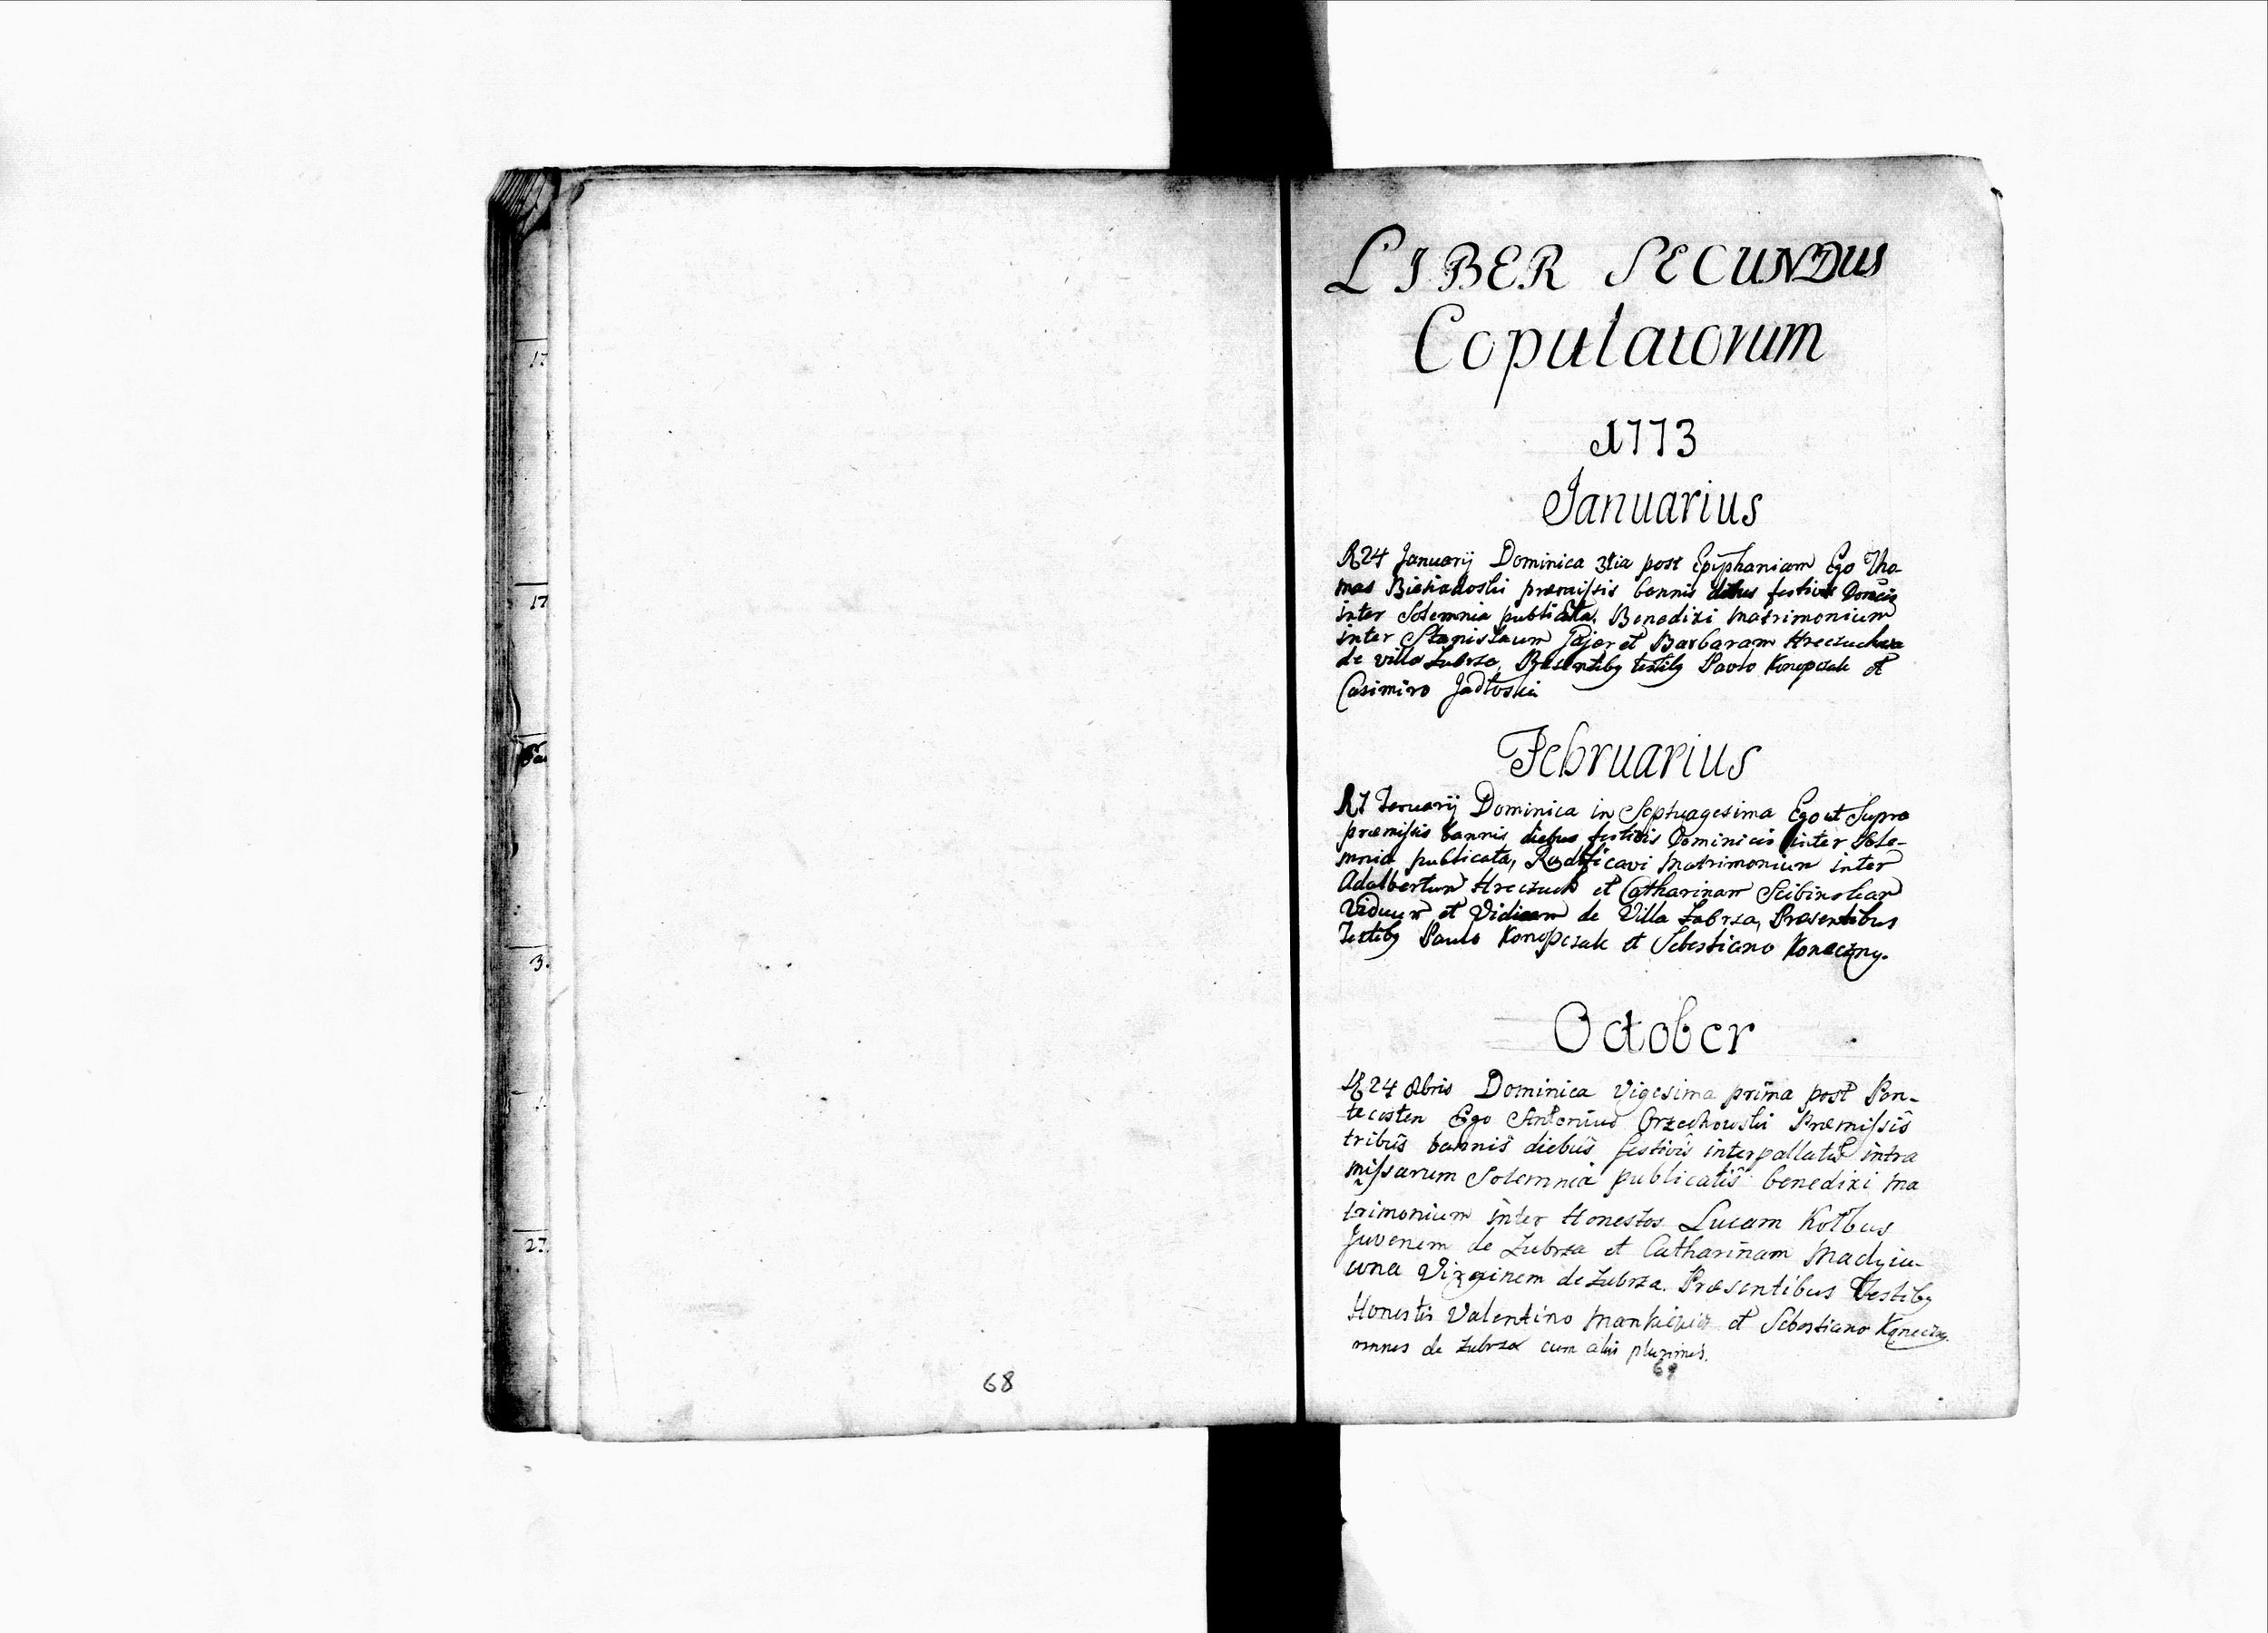 17
17
3.
27
68
LIBER SECUNDUS
Copulatorum
1773
Januarius
24 Januarij Dominica 3tia post Epiphaniam Ego Tho-
mas præmissis bannis festivis
inter Solemnia publicata. Benedixi Matrimonium
inter Stanislaum Gajor et Barbaram
de villa Zubrza, testibq Paulo Konopczak et
Casimiro Jadloski
Februarius
7 Dominica in Septuagesima Ego ut Supra
præmissis bannis diebus festivis Dominicis inter Sole-
mnia publicata, Ratificavi Matrimonium inter
Adalbertum Hreczuch et Catharinam
Viduum et Viduam de Villa Zubrza, Præsentibus
Testibq Paulo Konopczak et Sebestiano Koneczny.
October
24 8bris Dominica Vigesima prima post Pen-
tecosten Ego Antonius Orzechowski Præmissis
tribus bannis diebus festivis interpollatis intra
missarum Solemnia publicatis benedixi Ma
trimonium inter Honestos Lucam Kolbus
Juvenem de Zubrza et Catharinam
Virginem de Zubrza. Præsentibus Testibq
Honestis Valentino et Sebestiano
omnes de Zubrza cum aliis plurimis.
69